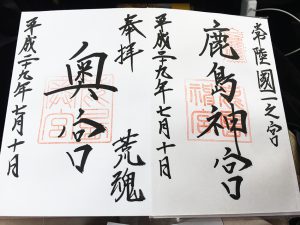 常陸國一之宮
鹿島神宮
平成二十九年七月十日
奉拝 荒魂
奥宮
平成二十九年七月十日